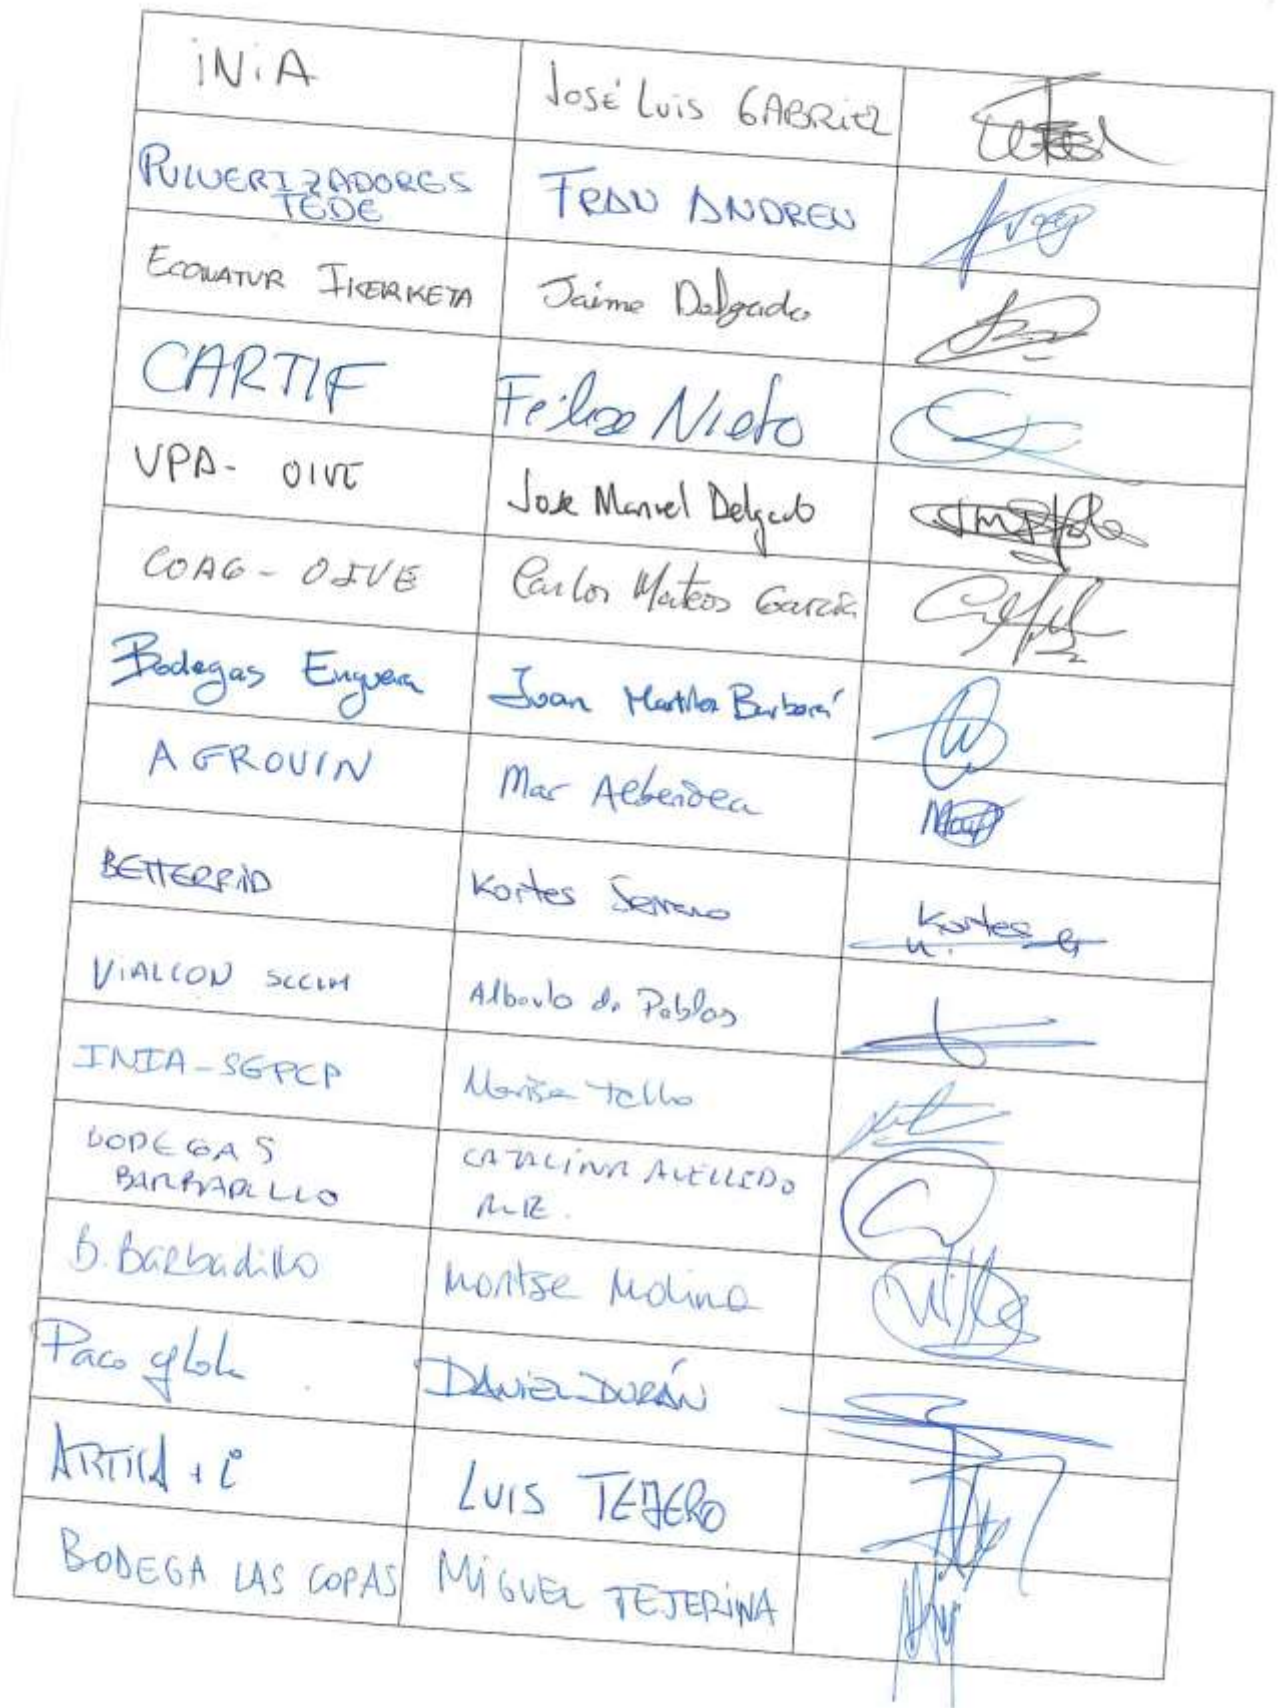 INIA
José Luis GABRIEL
PULVERIZADORES
TEDE
FRAN ANDREU
ECONATUR IKERKETA
Jaime Delgado
CARTIF
Felipe Nieto
UPA- OIVE
Jose Manuel Delgado
COAG - OIVE
Carlos Mateos García
Bodegas Enguera
Juan Martínez Barberá
AGROVIN
Mar Alberdea
BETTERRID
Kortes Serrano
Kortes
VIALCON SCCLM
Alberto de Pablos
INIA-SGPCP
Marisa Tello
BODEGAS
BARBADILLO
CATALINA ACELLEDO
B. Barbadillo
Montse Molina
Paco y Lola
DANIEL DURÁN
ARTICA + i
LUIS TEJERO
BODEGA LAS COPAS
MIGUEL TEJERINA